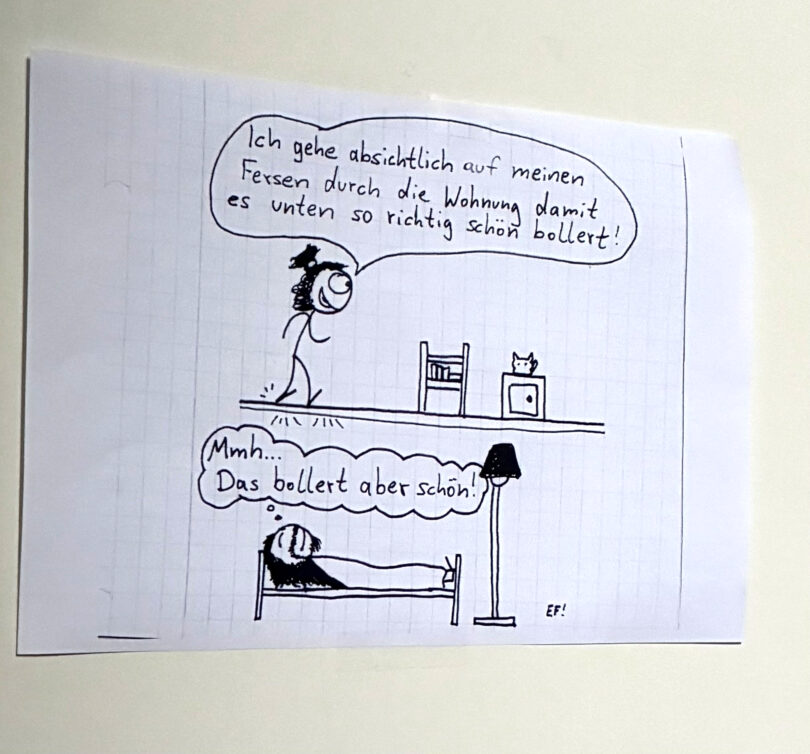 Ich gehe absichtlich auf meinen
Fersen durch die Wohnung damit
es unten so richtig schön bollert!
Mmh...
Das bollert aber schön!
EF!